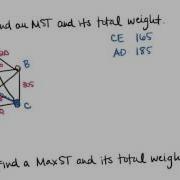 ind an MST and its total weight.
CE 165
AD 185
B
305
C
Find a MaxST and its total weigh